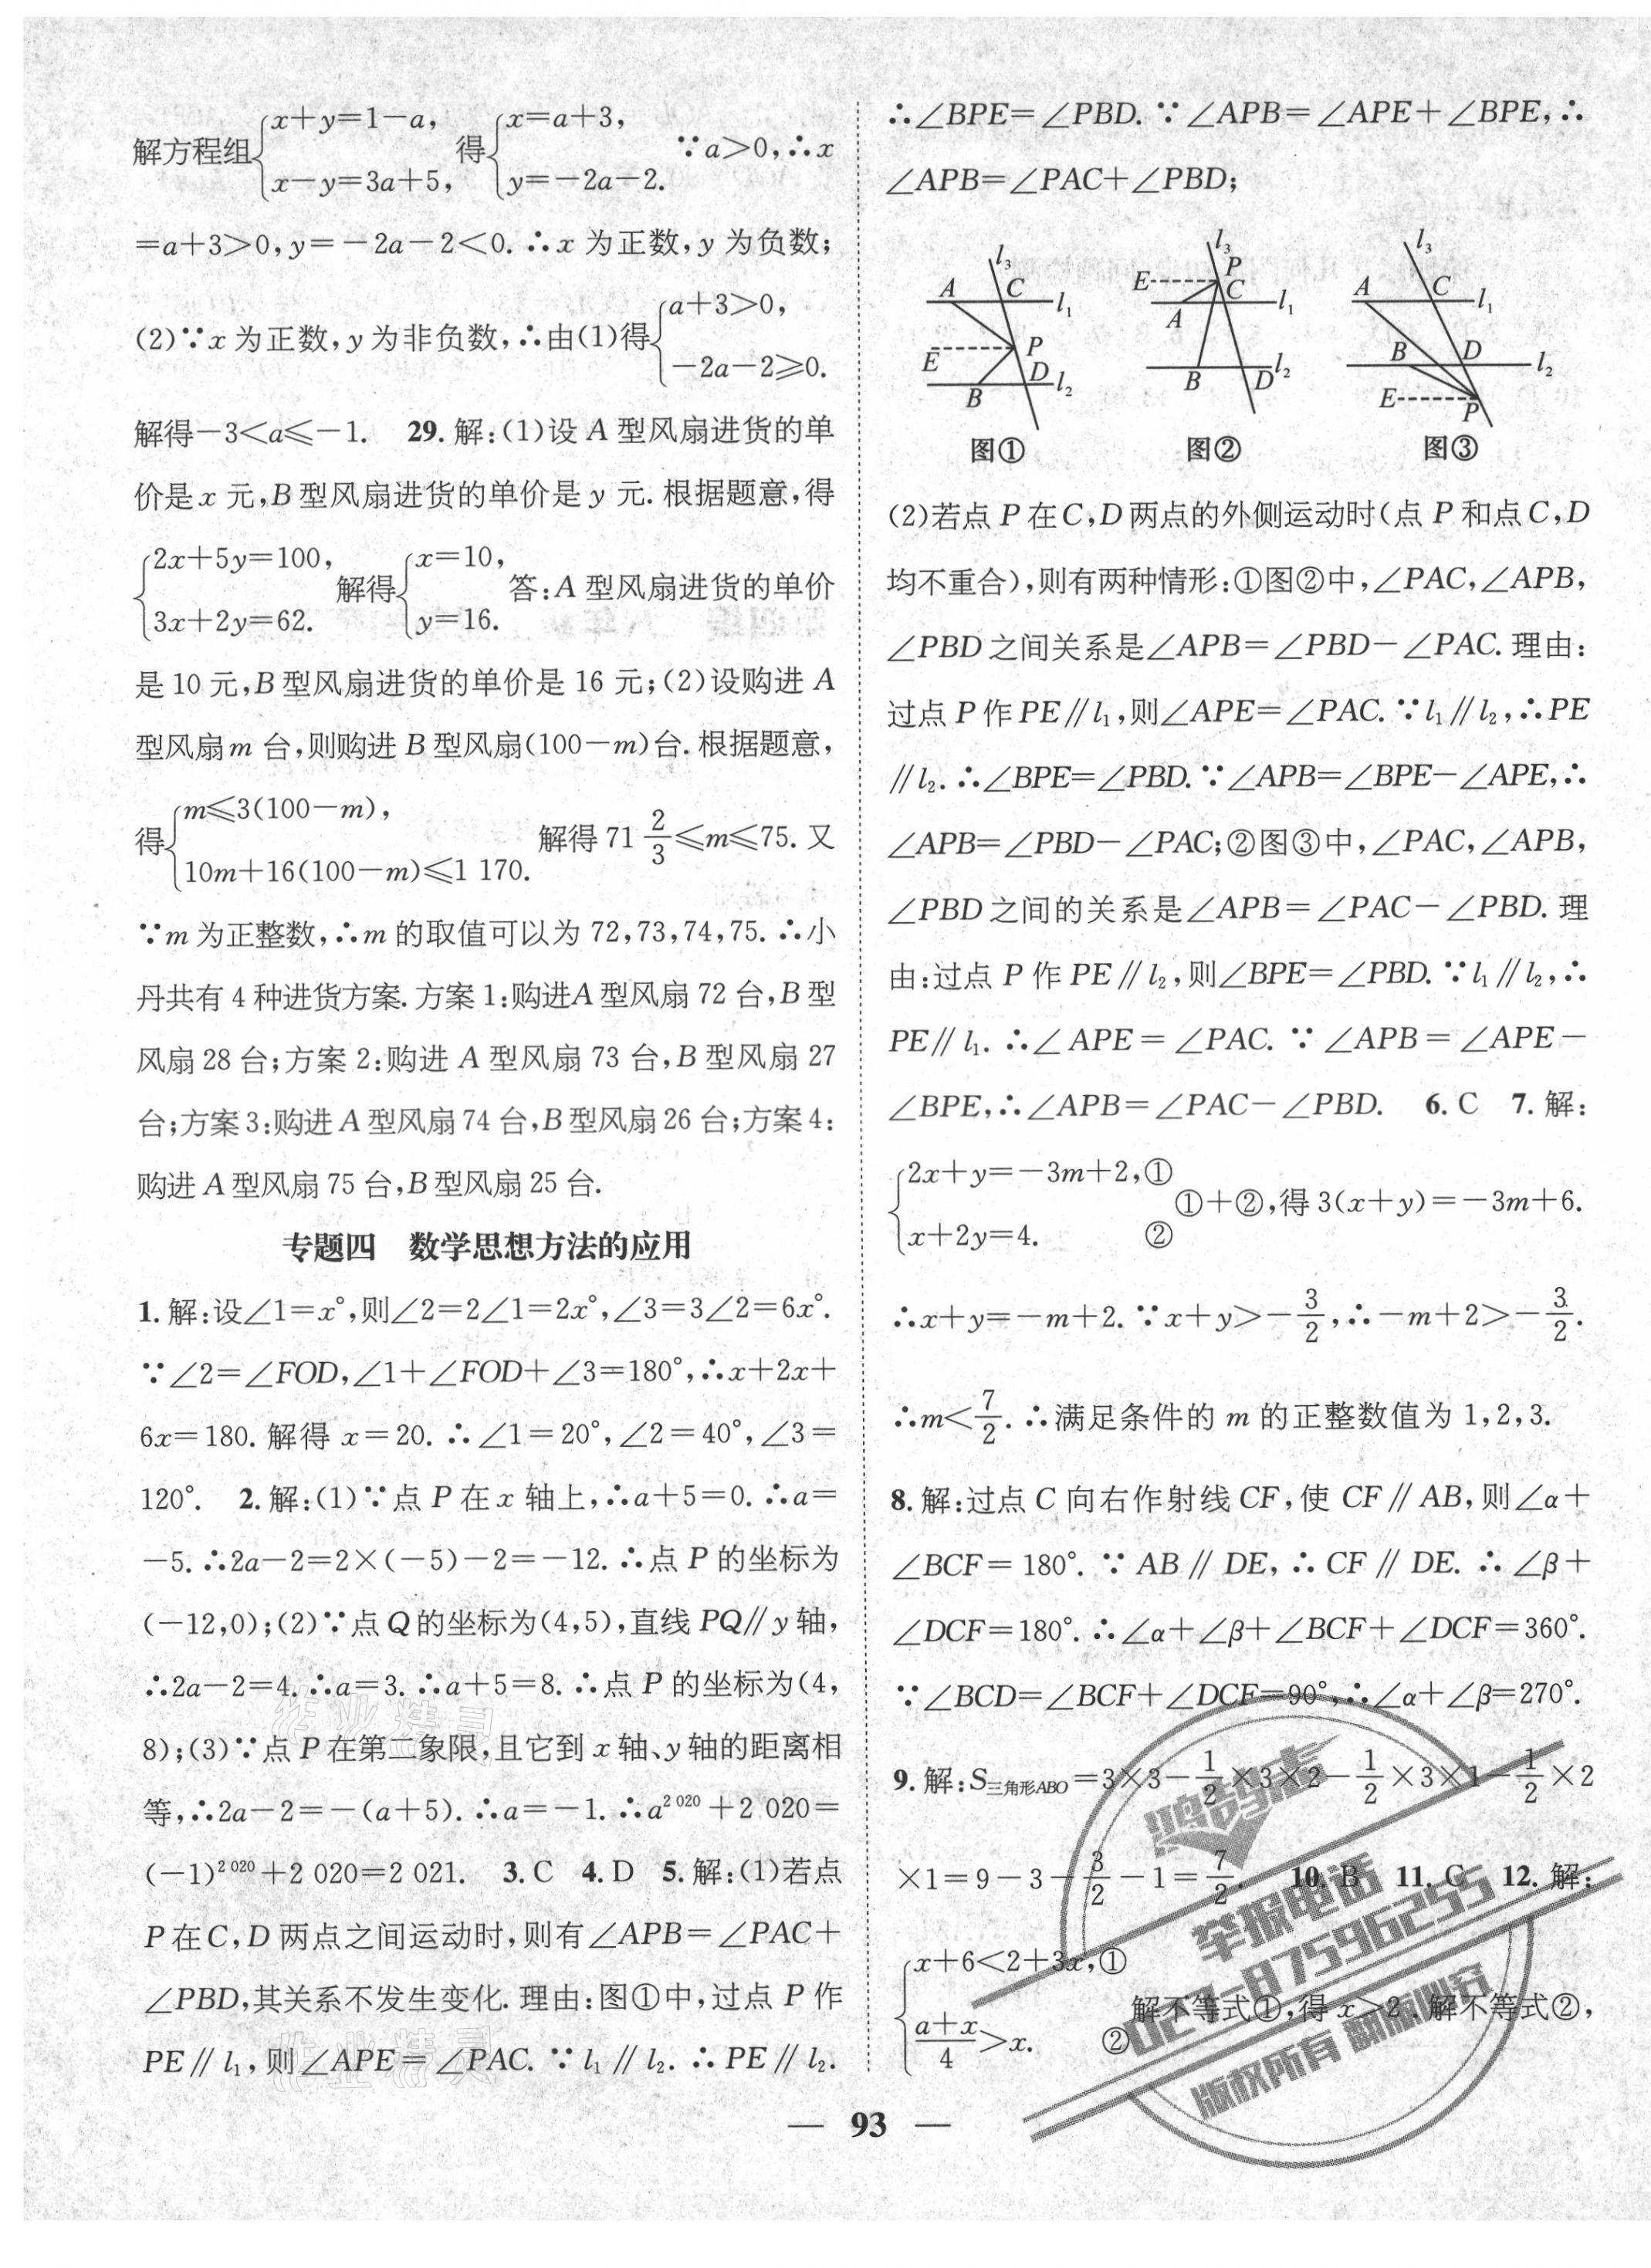 解方程组{x+y=1-a, x-y=3a+5, 得{x=a+3, y=-2a-2. ∵a>0,∴x
=a+3>0,y=-2a-2<0.∴x 为正数,y 为负数;
(2)∵x 为正数,y 为非负数,∴由(1)得{a+3>0, -2a-2≥0.
解得-3<a≤-1. 29.解:(1)设 A 型风扇进货的单
价是 x 元,B 型风扇进货的单价是 y 元.根据题意,得
{2x+5y=100, 3x+2y=62. 解得{x=10, y=16. 答:A 型风扇进货的单价
是 10 元,B 型风扇进货的单价是 16 元;(2)设购进 A
型风扇 m 台,则购进 B 型风扇(100-m)台.根据题意,
得{m≤3(100-m), 10m+16(100-m)≤1 170. 解得 71 2/3≤m≤75. 又
∵m 为正整数,∴m 的取值可以为 72,73,74,75.∴小
丹共有 4 种进货方案.方案 1:购进A 型风扇 72 台,B 型
风扇 28 台;方案 2:购进 A 型风扇 73 台,B 型风扇 27
台;方案 3:购进 A 型风扇 74 台,B 型风扇 26 台;方案 4:
购进 A 型风扇 75 台,B 型风扇 25 台.
专题四 数学思想方法的应用
1.解:设∠1=x°,则∠2=2∠1=2x°,∠3=3∠2=6x°.
∵∠2=∠FOD,∠1+∠FOD+∠3=180°,∴x+2x+
6x=180.解得 x=20.∴∠1=20°,∠2=40°,∠3=
120°. 2.解:(1)∵点 P 在 x 轴上,∴a+5=0.∴a=
-5.∴2a-2=2×(-5)-2=-12.∴点 P 的坐标为
(-12,0);(2)∵点 Q 的坐标为(4,5),直线 PQ∥y 轴,
∴2a-2=4.∴a=3.∴a+5=8.∴点 P 的坐标为(4,
8);(3)∵点 P 在第二象限,且它到 x 轴、y 轴的距离相
等,∴2a-2=-(a+5).∴a=-1.∴a^2 020+2 020=
(-1)^2 020+2 020=2 021. 3.C 4.D 5.解:(1)若点
P 在 C,D 两点之间运动时,则有∠APB=∠PAC+
∠PBD,其关系不发生变化.理由:图①中,过点 P 作
PE∥l₁,则∠APE=∠PAC.∵l₁∥l₂.∴PE∥l₂.
∴∠BPE=∠PBD.∵∠APB=∠APE+∠BPE,∴
∠APB=∠PAC+∠PBD;
l₃ A C l₁ E P D B l₂
l₃ P E C A l₁ B D l₂
l₃ A C l₁ B D l₂ E P
图① 图② 图③
(2)若点 P 在 C,D 两点的外侧运动时(点 P 和点 C,D
均不重合),则有两种情形:①图②中,∠PAC,∠APB,
∠PBD 之间关系是∠APB=∠PBD-∠PAC.理由:
过点 P 作 PE∥l₁,则∠APE=∠PAC.∵l₁∥l₂,∴PE
∥l₂.∴∠BPE=∠PBD.∵∠APB=∠BPE-∠APE,∴
∠APB=∠PBD-∠PAC;②图③中,∠PAC,∠APB,
∠PBD 之间的关系是∠APB=∠PAC-∠PBD.理
由:过点 P 作 PE∥l₂,则∠BPE=∠PBD.∵l₁∥l₂,∴
PE∥l₁.∴∠APE=∠PAC.∵∠APB=∠APE-
∠BPE,∴∠APB=∠PAC-∠PBD. 6.C 7.解:
{2x+y=-3m+2,① x+2y=4. ② ①+②,得 3(x+y)=-3m+6.
∴x+y=-m+2.∵x+y>-3/2,∴-m+2>-3/2.
∴m<7/2.∴满足条件的 m 的正整数值为 1,2,3.
8.解:过点 C 向右作射线 CF,使 CF∥AB,则∠α+
∠BCF=180°.∵AB∥DE,∴CF∥DE.∴∠β+
∠DCF=180°.∴∠α+∠β+∠BCF+∠DCF=360°.
∵∠BCD=∠BCF+∠DCF=90°,∴∠α+∠β=270°.
9.解:S三角形ABO=3×3-1/2×3×2-1/2×3×1-1/2×2
×1=9-3-3/2-1=7/2. 10.B 11.C 12.解:
{x+6<2+3x,① (a+x)/4>x. ② 解不等式①,得 x>2.解不等式②,
— 93 —
作业精灵
作业精灵
举报电话
027-87596255
版权所有 翻版必究